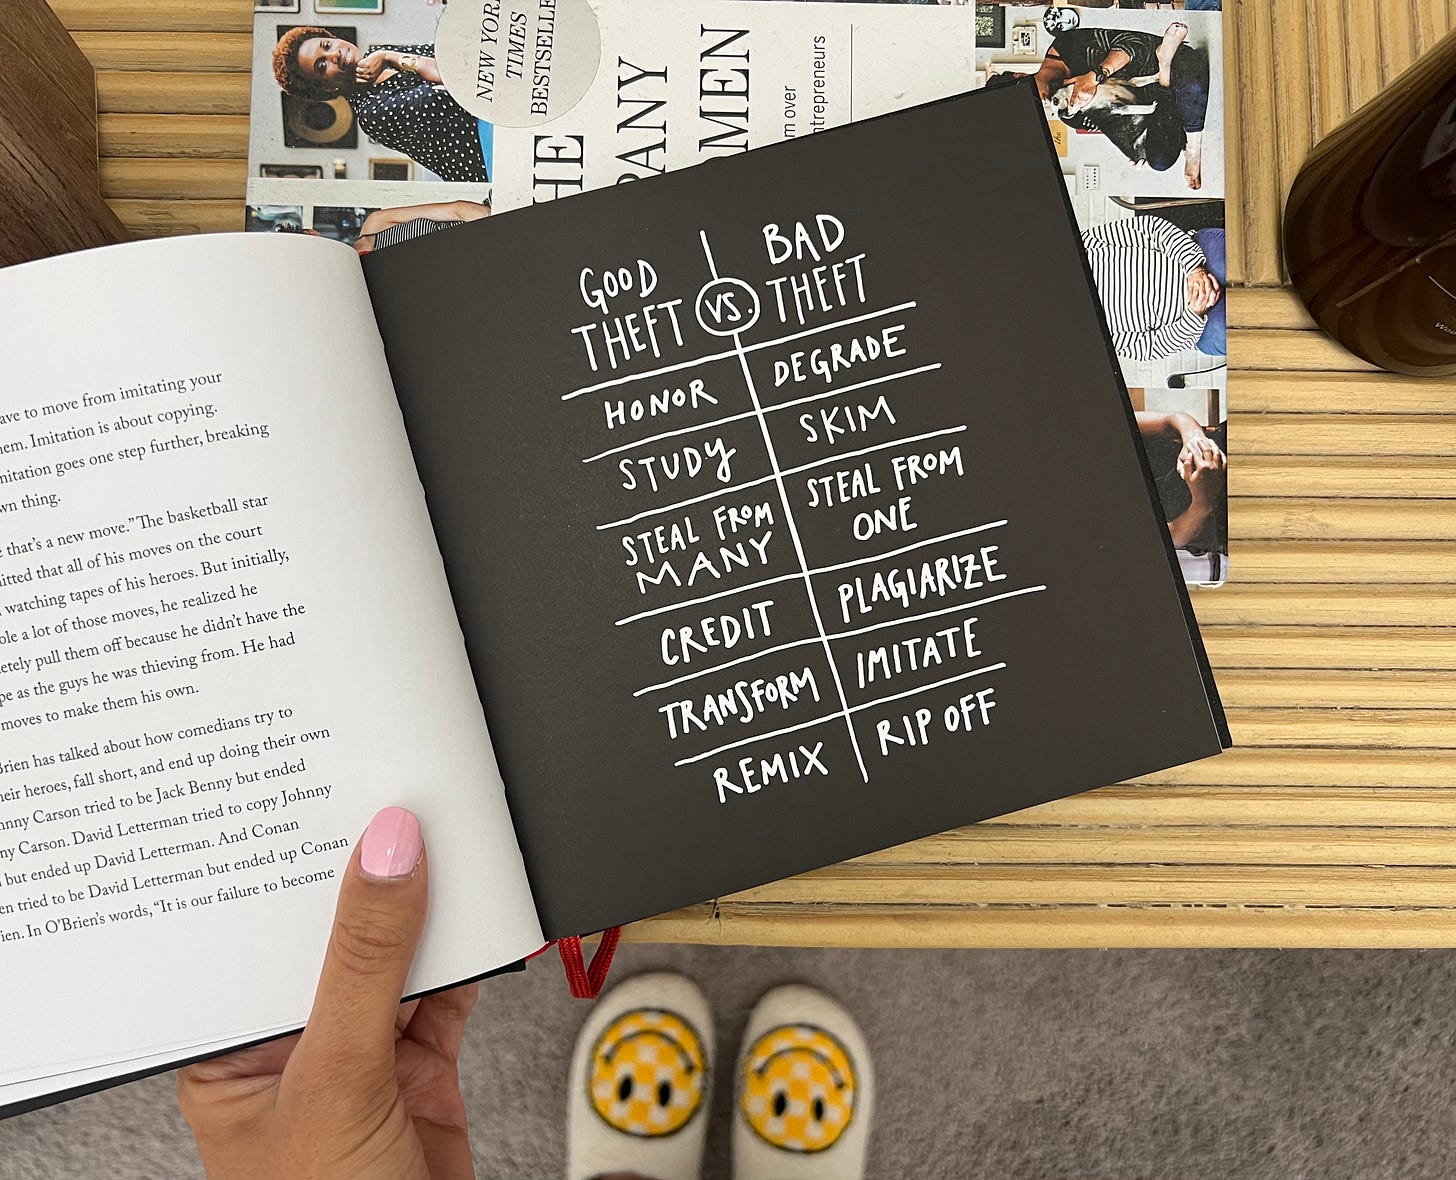 NEW YORK
TIMES
BESTSELLE
THE
PANY
OMEN
m over
ntrepreneurs
ave to move from imitating your
hem. Imitation is about copying.
nitation goes one step further, breaking
wn thing.
e that's a new move." The basketball star
nitted that all of his moves on the court
watching tapes of his heroes. But initially,
ole a lot of those moves, he realized he
letely pull them off because he didn't have the
pe as the guys he was thieving from. He had
moves to make them his own.
Brien has talked about how comedians try to
heir heroes, fall short, and end up doing their own
hnny Carson tried to be Jack Benny but ended
ny Carson. David Letterman tried to copy Johnny
but ended up David Letterman. And Conan
en tried to be David Letterman but ended up Conan
ien. In O'Brien's words, "It is our failure to become
GOOD THEFT VS. BAD THEFT
HONOR DEGRADE
STUDY SKIM
STEAL FROM MANY STEAL FROM ONE
CREDIT PLAGIARIZE
TRANSFORM IMITATE
REMIX RIP OFF